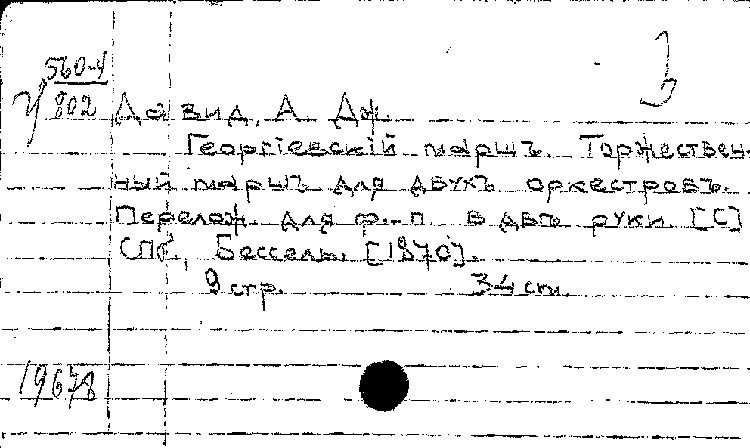 560-4
У 802
З
Давид, А. Дж.
Георгіевскій маршъ. Торжествен-
ный маршъ для двухъ оркестровъ.
Перелож. для ф.-п. въ двѣ руки. [С]
СПб, Бессель. [1870].
9 стр. 34 см.
19678